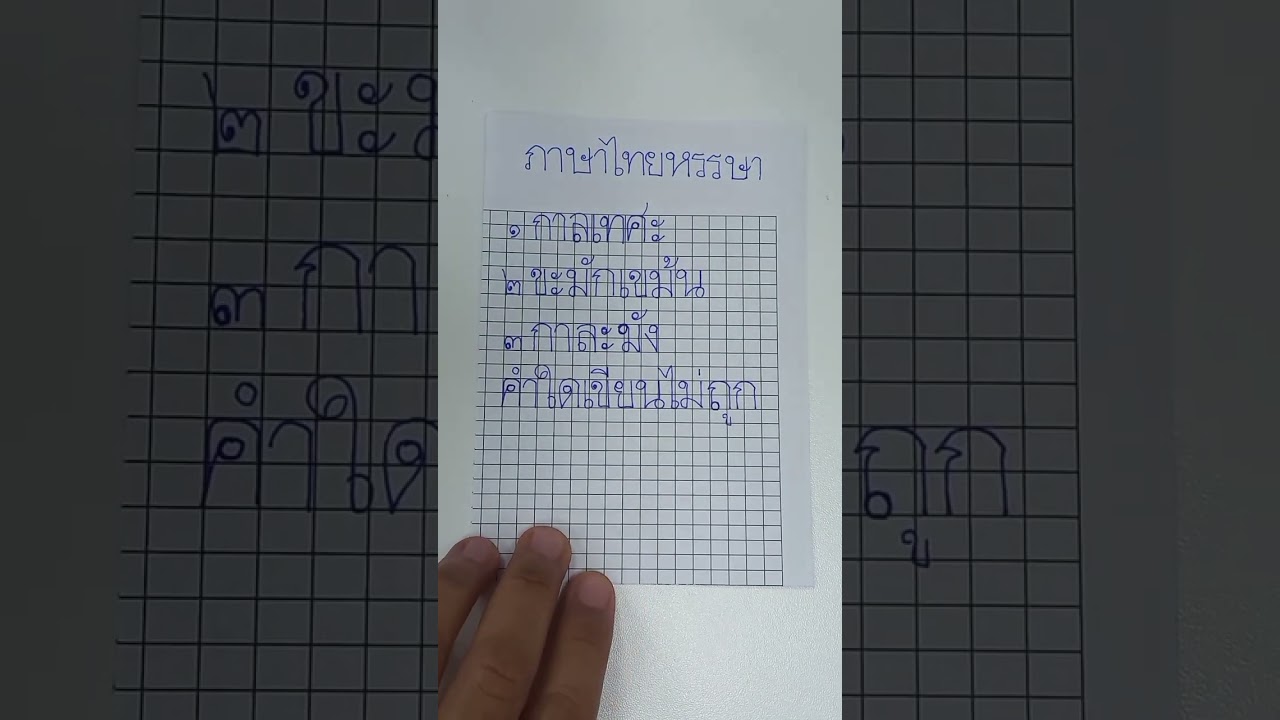 ภาษาไทยหรรษา
๑ กาลเทศะ
๒ ขะมักเขม้น
๓ กาละมัง
คำใดเขียนไม่ถูก